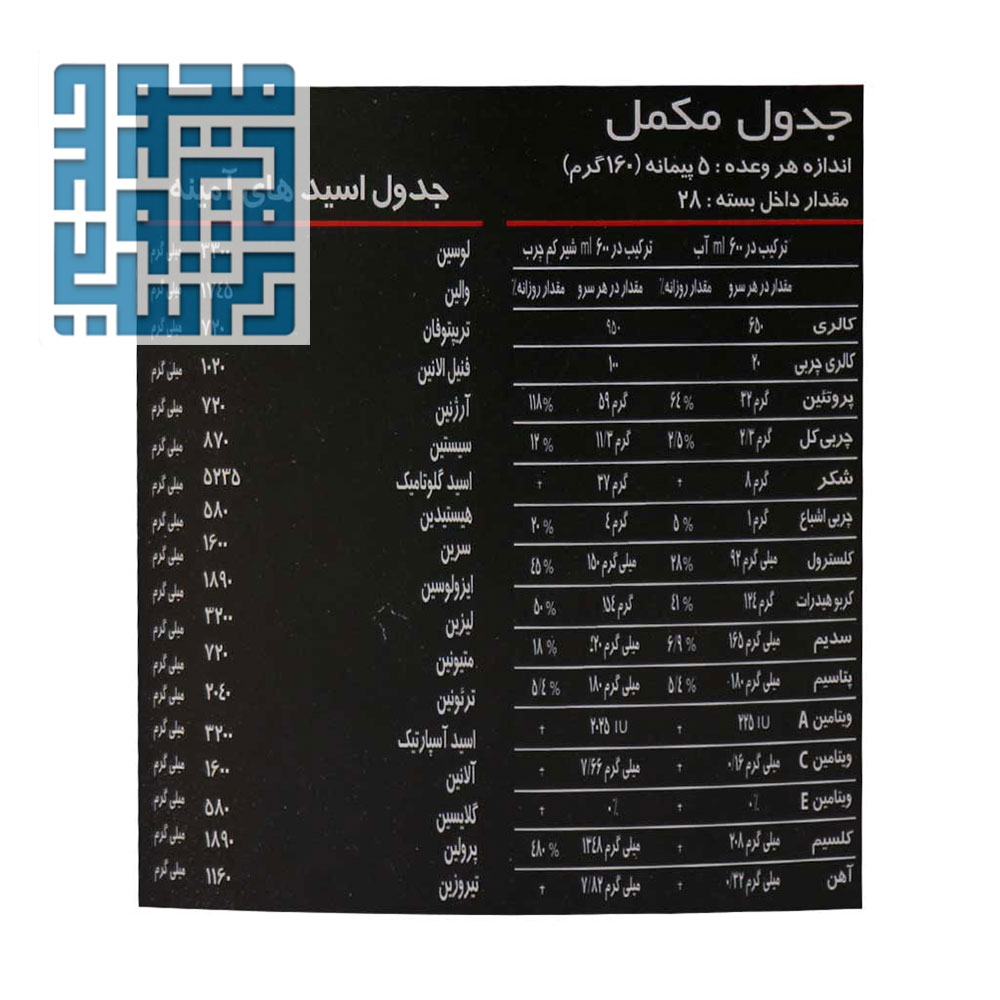 جدول مکمل
اندازه هر وعده : ۵ پیمانه (۱۶۰گرم)
مقدار داخل بسته : ۲۸
ترکیب در ۶۰۰ ml آب ترکیب در ۶۰۰ ml شیر کم چرب
مقدار در هر سرو مقدار روزانه٪ مقدار در هر سرو مقدار روزانه٪
کالری ۶۵۰ ۹۵۰
کالری چربی ۲۰ ۱۰۰
پروتئین گرم ۳۲ ٦٤ % گرم ۵۹ ۱۱۸%
چربی کل گرم ۲/۳ ۲/۵% گرم ۱۱/۳ ۱۲ %
شکر گرم ۸ + گرم ۳۷ +
چربی اشباع گرم ۱ ۵ % گرم ٤ ۲۰ %
کلسترول میلی گرم ۹۲ ۲۸% میلی گرم ۱۵۰ ٤۵ %
کربوهیدرات گرم ۱۲٤ ٤۱ % گرم ۱۵٤ ۵۰ %
سدیم میلی گرم ۱۶۵ ۶/۹ % میلی گرم ۱۸ %
پتاسیم میلی گرم ۱۸۰ ۵/٤ % میلی گرم ۱۸۰ ۵/٤ %
ویتامین A ۲۲۵ IU + ۲۰۲۵ IU +
ویتامین C میلی گرم ۰/۱۶ + میلی گرم ۷/۶۶ +
ویتامین E ۰٪ + ۰٪ +
کلسیم میلی گرم ۲۰۸ + میلی گرم ۱۳٤۸ ٤۸۰ %
آهن میلی گرم ۰/۳۲ + میلی گرم ۷/۸۲ +
جدول اسید های آمینه
لوسین ۳۳۰۰ میلی گرم
والین ۱۷٤۵ میلی گرم
تریپتوفان ۷۲۰ میلی گرم
فنیل الانین ۱۰۲۰ میلی گرم
آرژنین ۷۲۰ میلی گرم
سیستین ۸۷۰ میلی گرم
اسید گلوتامیک ۵۲۳۵ میلی گرم
هیستیدین ۵۸۰ میلی گرم
سرین ۱۶۰۰ میلی گرم
ایزولوسین ۱۸۹۰ میلی گرم
لیزین ۳۲۰۰ میلی گرم
متیونین ۷۲۰ میلی گرم
ترئونین ۲۰٤۰ میلی گرم
اسید آسپارتیک ۳۲۰۰ میلی گرم
آلانین ۱۶۰۰ میلی گرم
گلایسین ۵۸۰ میلی گرم
پرولین ۱۸۹۰ میلی گرم
تیروزین ۱۱۶۰ میلی گرم